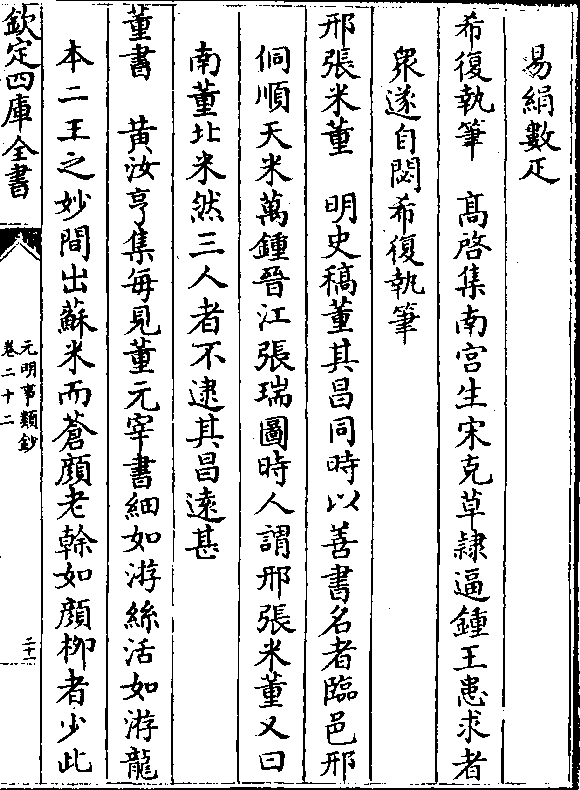 易絹數疋
希復執筆　髙啓集南宫生宋克草隷逼鍾王患求者
衆遂自閟希復執筆
邢張米董　明史稿董其昌同時以善書名者臨邑邢
侗順天米萬鍾晉江張瑞圖時人謂邢張米董又曰
南董北米然三人者不逮其昌遠甚
董書　黄汝亨集毎見董元宰書細如游絲活如游龍
本二王之妙間出蘇米而蒼顔老榦如顔柳者少此
欽定四庫全書
元明事類鈔
卷二十二
二十一